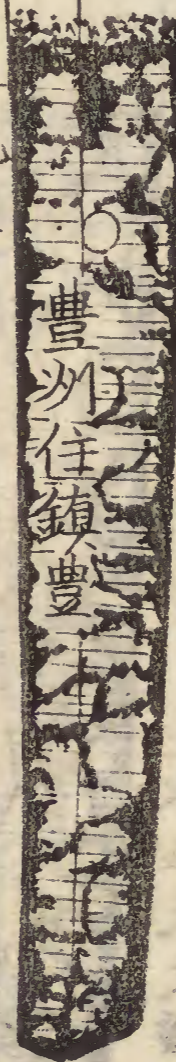 豊州住鎮豊